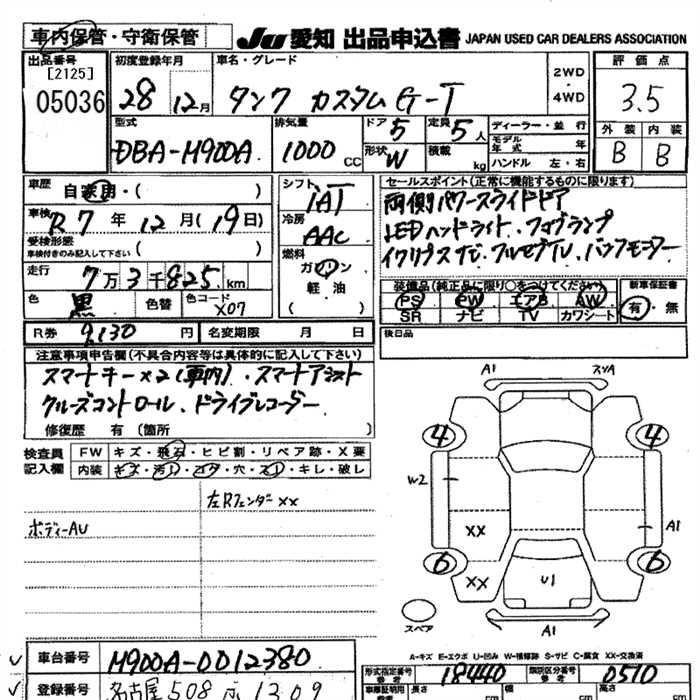 車内保管・守衛保管 JU 愛知 出品申込書 JAPAN USED CAR DEALERS ASSOCIATION
出品番号 初度登録年月 車名・グレード 2WD・4WD 評価点
[2125]
05036 28 12月 タンク カスタムG-T 3.5
型式 排気量 ドア 5 定員 5人 ディーラー・並行 外装 内装
DBA-M900A 1000cc 形状 W 積載 kg モデル年式 年 B B
ハンドル 左・右
車歴 自家用・( ) シフト IAT セールスポイント(正常に機能するものに限ります)
車検 R7年12月(19日) 冷房 AAC 両側パワースライドドア
受検形態 LEDヘッドライト、フォグランプ
車検付きのみ記入して下さい ( ) 燃料 イクリプスナビ、フルセグTV、バックモニター
走行 7万3千825km ガソリン
軽油
( )
装備品(純正品に限り○をつけてください) 新車保証書
色 黒 色替 色コード X07 PS PW エアB AW 有・無
SR ナビ TV カワシート
R券 9,130円 名変期限 月 日 後日品
注意事項申告欄(不具合内容等は具体的に記入して下さい)
スマートキー×2(車内)、スマートアシスト
クルーズコントロール、ドライブレコーダー
修復歴 有 (箇所 )
検査員記入欄 FW キズ・飛石・ヒビ割・リペア跡・X要
内装 キズ・汚レ・コゲ・穴・スレ・キレ・破レ
左Rフェンダー××
ボディーAU
A1 スソA
4 4
W2
XX A1
6 6
XX U1
スペア A1
A-キズ E-エクボ U-凹み W-補修跡 S-サビ C-腐食 XX-交換済
車台番号 M900A-0012380 形式指定番号 参考 18440 類別区分番号 参考 0510
登録番号 名古屋508 1309 車庫証明用 参考 長さ cm 幅 cm 高さ cm